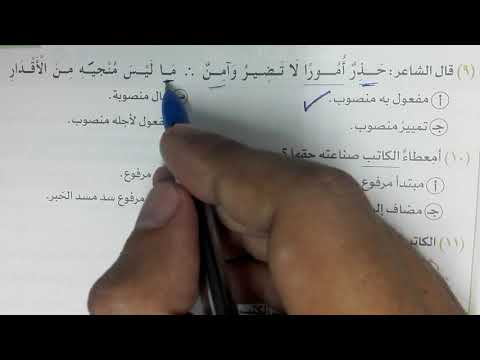 (٩) قال الشاعر: حَذِرٌ أُمُورًا لَا تَضِيرُ وَآمِنٌ ∴ مَا لَيْسَ مُنْجِيَه مِنَ الْأَقْدَارِ
أ مفعول به منصوب. منصوبة.
ج تمييز منصوب. لأجله منصوب.
(١٠) أمعطاءٌ الكاتب صناعته حقها؟
أ مبتدأ مرفوع مرفوع.
ج مضاف مرفوع سد مسد الخبر.
(١١) الكاتب